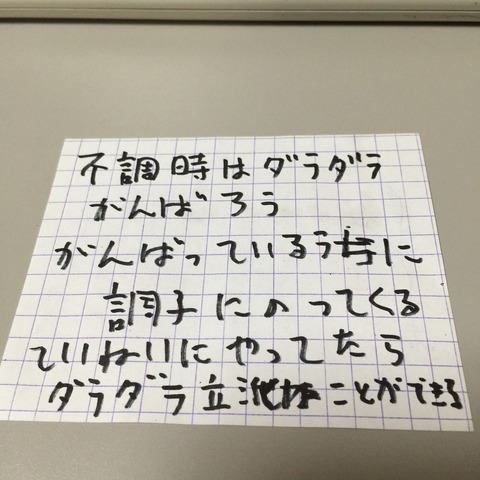 不調時はダラダラ
がんばろう
がんばっているうちに
調子にのってくる
ていねいにやってたら
ダラダラ立ことができる